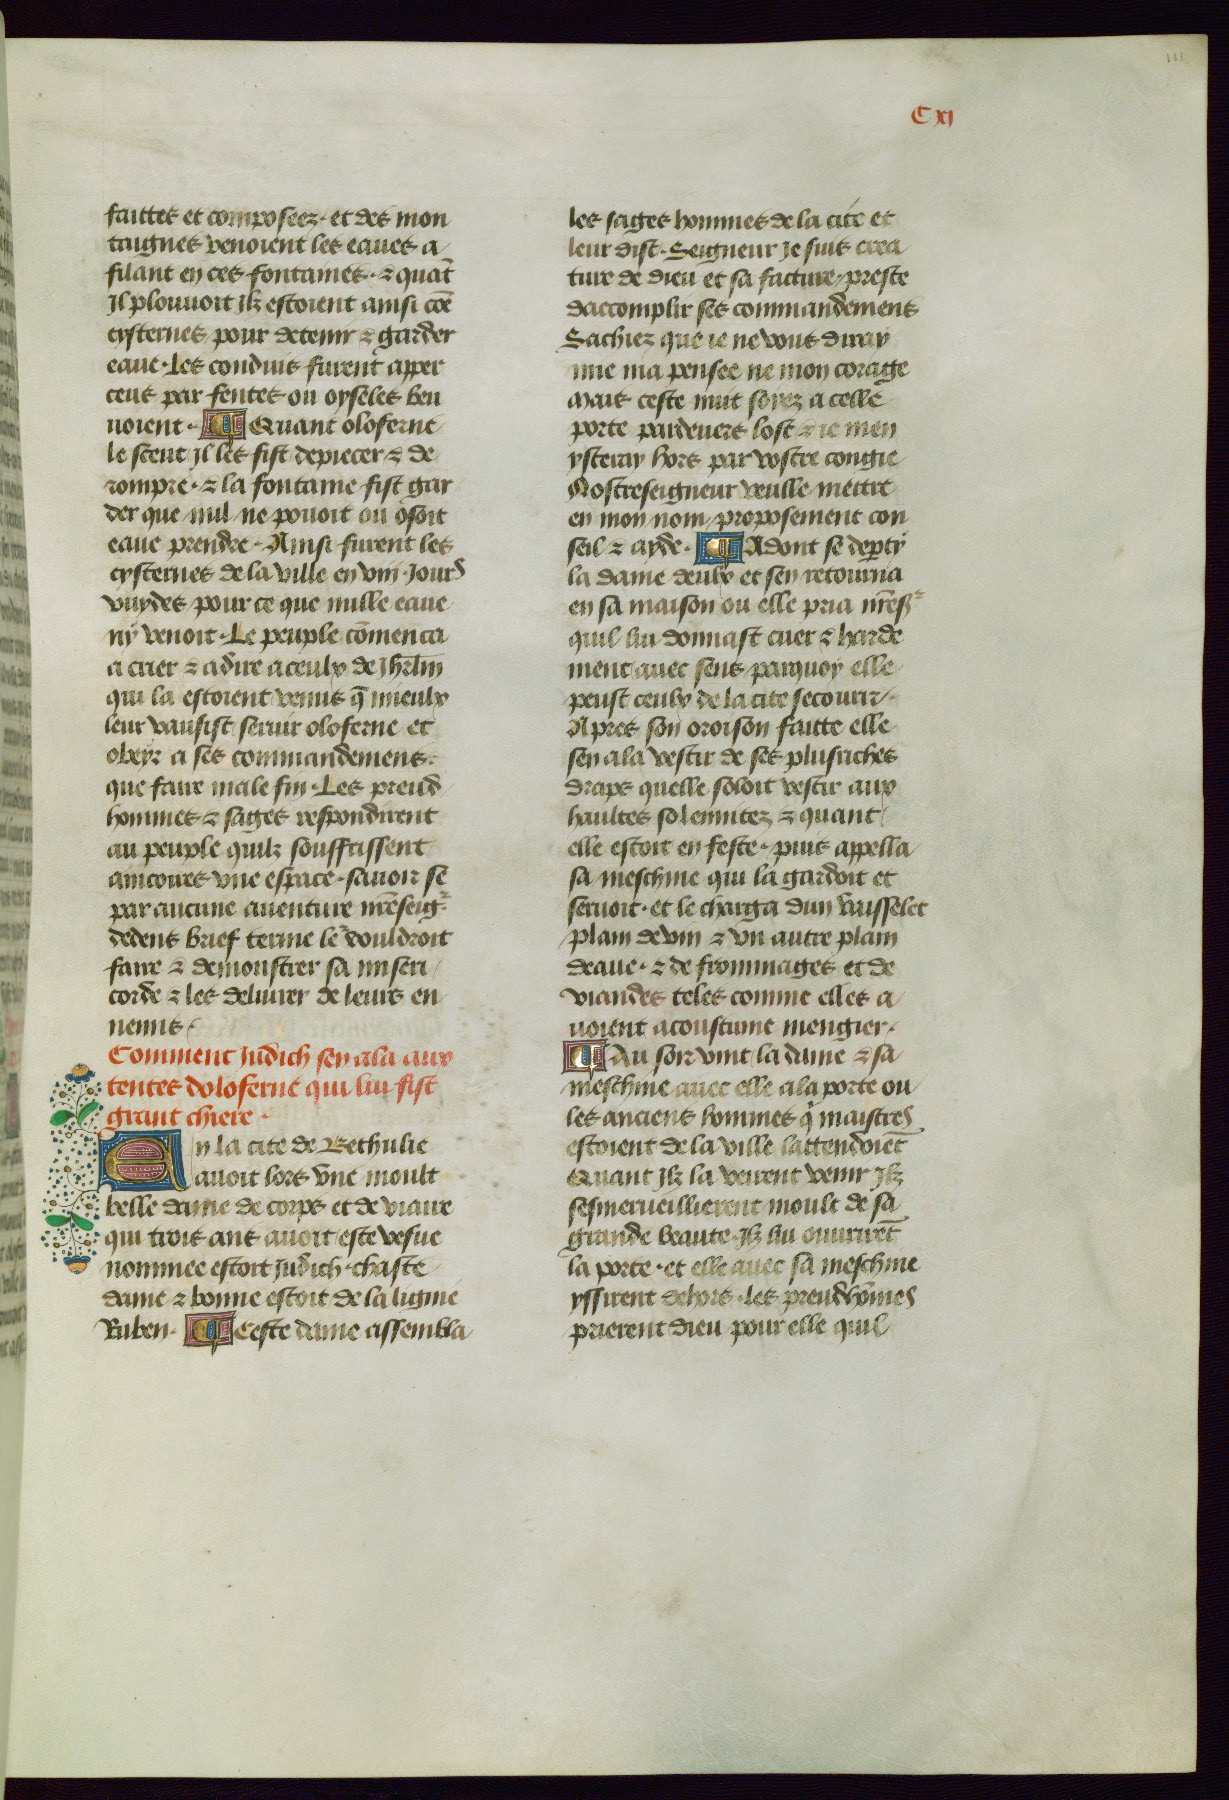 111
C xj
faittes et composeez · et des mon
taignes venoient les eaues a
filant en ces fontaines · & quãt
Jl plouuoit Jlz estoient ainsi cõe
cysternes pour detenir & garder
eaue · Les conduis furent apper
ceus par fentes ou oyseles beu
uoient · Quant oloferne
le sceut Jl les fist depiecer & de
rompre · & la fontaine fist gar
der que nul ne pouoit ou osoit
eaue prendre · Ainsi furent les
cysternes de la ville en viij · Jours
vuydes pour ce que nulle eaue
ny venoit · Le peuple cõmenca
a crier & a dire a ceulx de Jhrlm̃
qui la estoient venus q̃ mieulx
leur vausist seruir oloferne et
obeyr a ses commandemens ·
que faire male fin · Les preud
hommes & sages respondirent
au peuple quilz souffrissent
aincoires vne espace · sauoir se
par aucune auenture nr̃eseigr
dedens brief terme le᷑ vouldroit
faire & demonstrer sa miseri
corde & les deliurer de leurs en
nemis ·
Comment Judich sen ala aux
tentes doloferne qui lui fist
grant chiere ·
En la cite de Bethulie
auoit lors vne moult
belle dame de corps et de viaire
qui trois ans auoit este vesue
nommee estoit Judich · chaste
dame & bonne estoit de la lignie
Ruben · Ceste dame assembla
les sages hommes de la cite et
leur dist · Seigneur Je suis crea
ture de dieu et sa facture · preste
daccomplir ses commandemens
Sachiez que ie ne vous diray
mie ma pensee ne mon corage
Mais ceste nuit soyez a celle
porte pardeuers lost & ie men
ysteray hors par vostre congie
Nostreseigneur veulle mettre
en mon nom proposement con
seil & ayde · Adont se depty
la dame deulx et sen retourna
en sa maison ou elle pria nr̃esr
quil lui donnast cuer & harde
ment auec sens parquoy elle
peust ceulx de la cite secourir ·
Apres son oroison faitte elle
sen ala vestir de ses plusriches
draps quelle soloit vestir aux
haultes solennitez & quant
elle estoit en feste · puis appella
sa meschine qui la gardoit et
seruoit · et le charga dun vaisselet
plain de vin & vn autre plain
deaue · & de frommages et de
viandes teles comme elles a
uoient acoustume mengier ·
Au soir vint la dame & sa
meschine auec elle a la porte ou
les anciens hommes q̃ maistres
estoient de la ville lattendoiẽt
Quant Jlz la veirent venir Jlz
sesmerueillierent moult de sa
grande beaute · Jlz lui ouurirẽt
la porte · et elle auec sa meschine
yssirent dehors · Les preudhõmes
prierent dieu pour elle quil